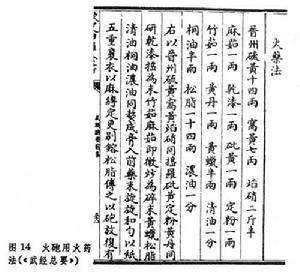 火藥法
晉州硫黃十四兩 窩黃七兩 焰硝二斤半
麻茹一兩 乾漆一兩 砒黃一兩 定粉一兩
竹茹一兩 黃丹一兩 黃蠟半兩 清油一分
桐油半兩 松脂一十四兩 濃油一分
右以晉州硫黃窩黃焰硝同搗羅砒黃定粉黃丹同
研乾漆搗為末竹茹麻茹即微炒為碎末黃蠟松脂
清油桐油濃油同熬成膏入前藥末旋旋和勻以紙
五重裹衣以麻縛定更別鎔松脂傅之以砲放復有
图 14 火砲用火药
法(《武经总要》)